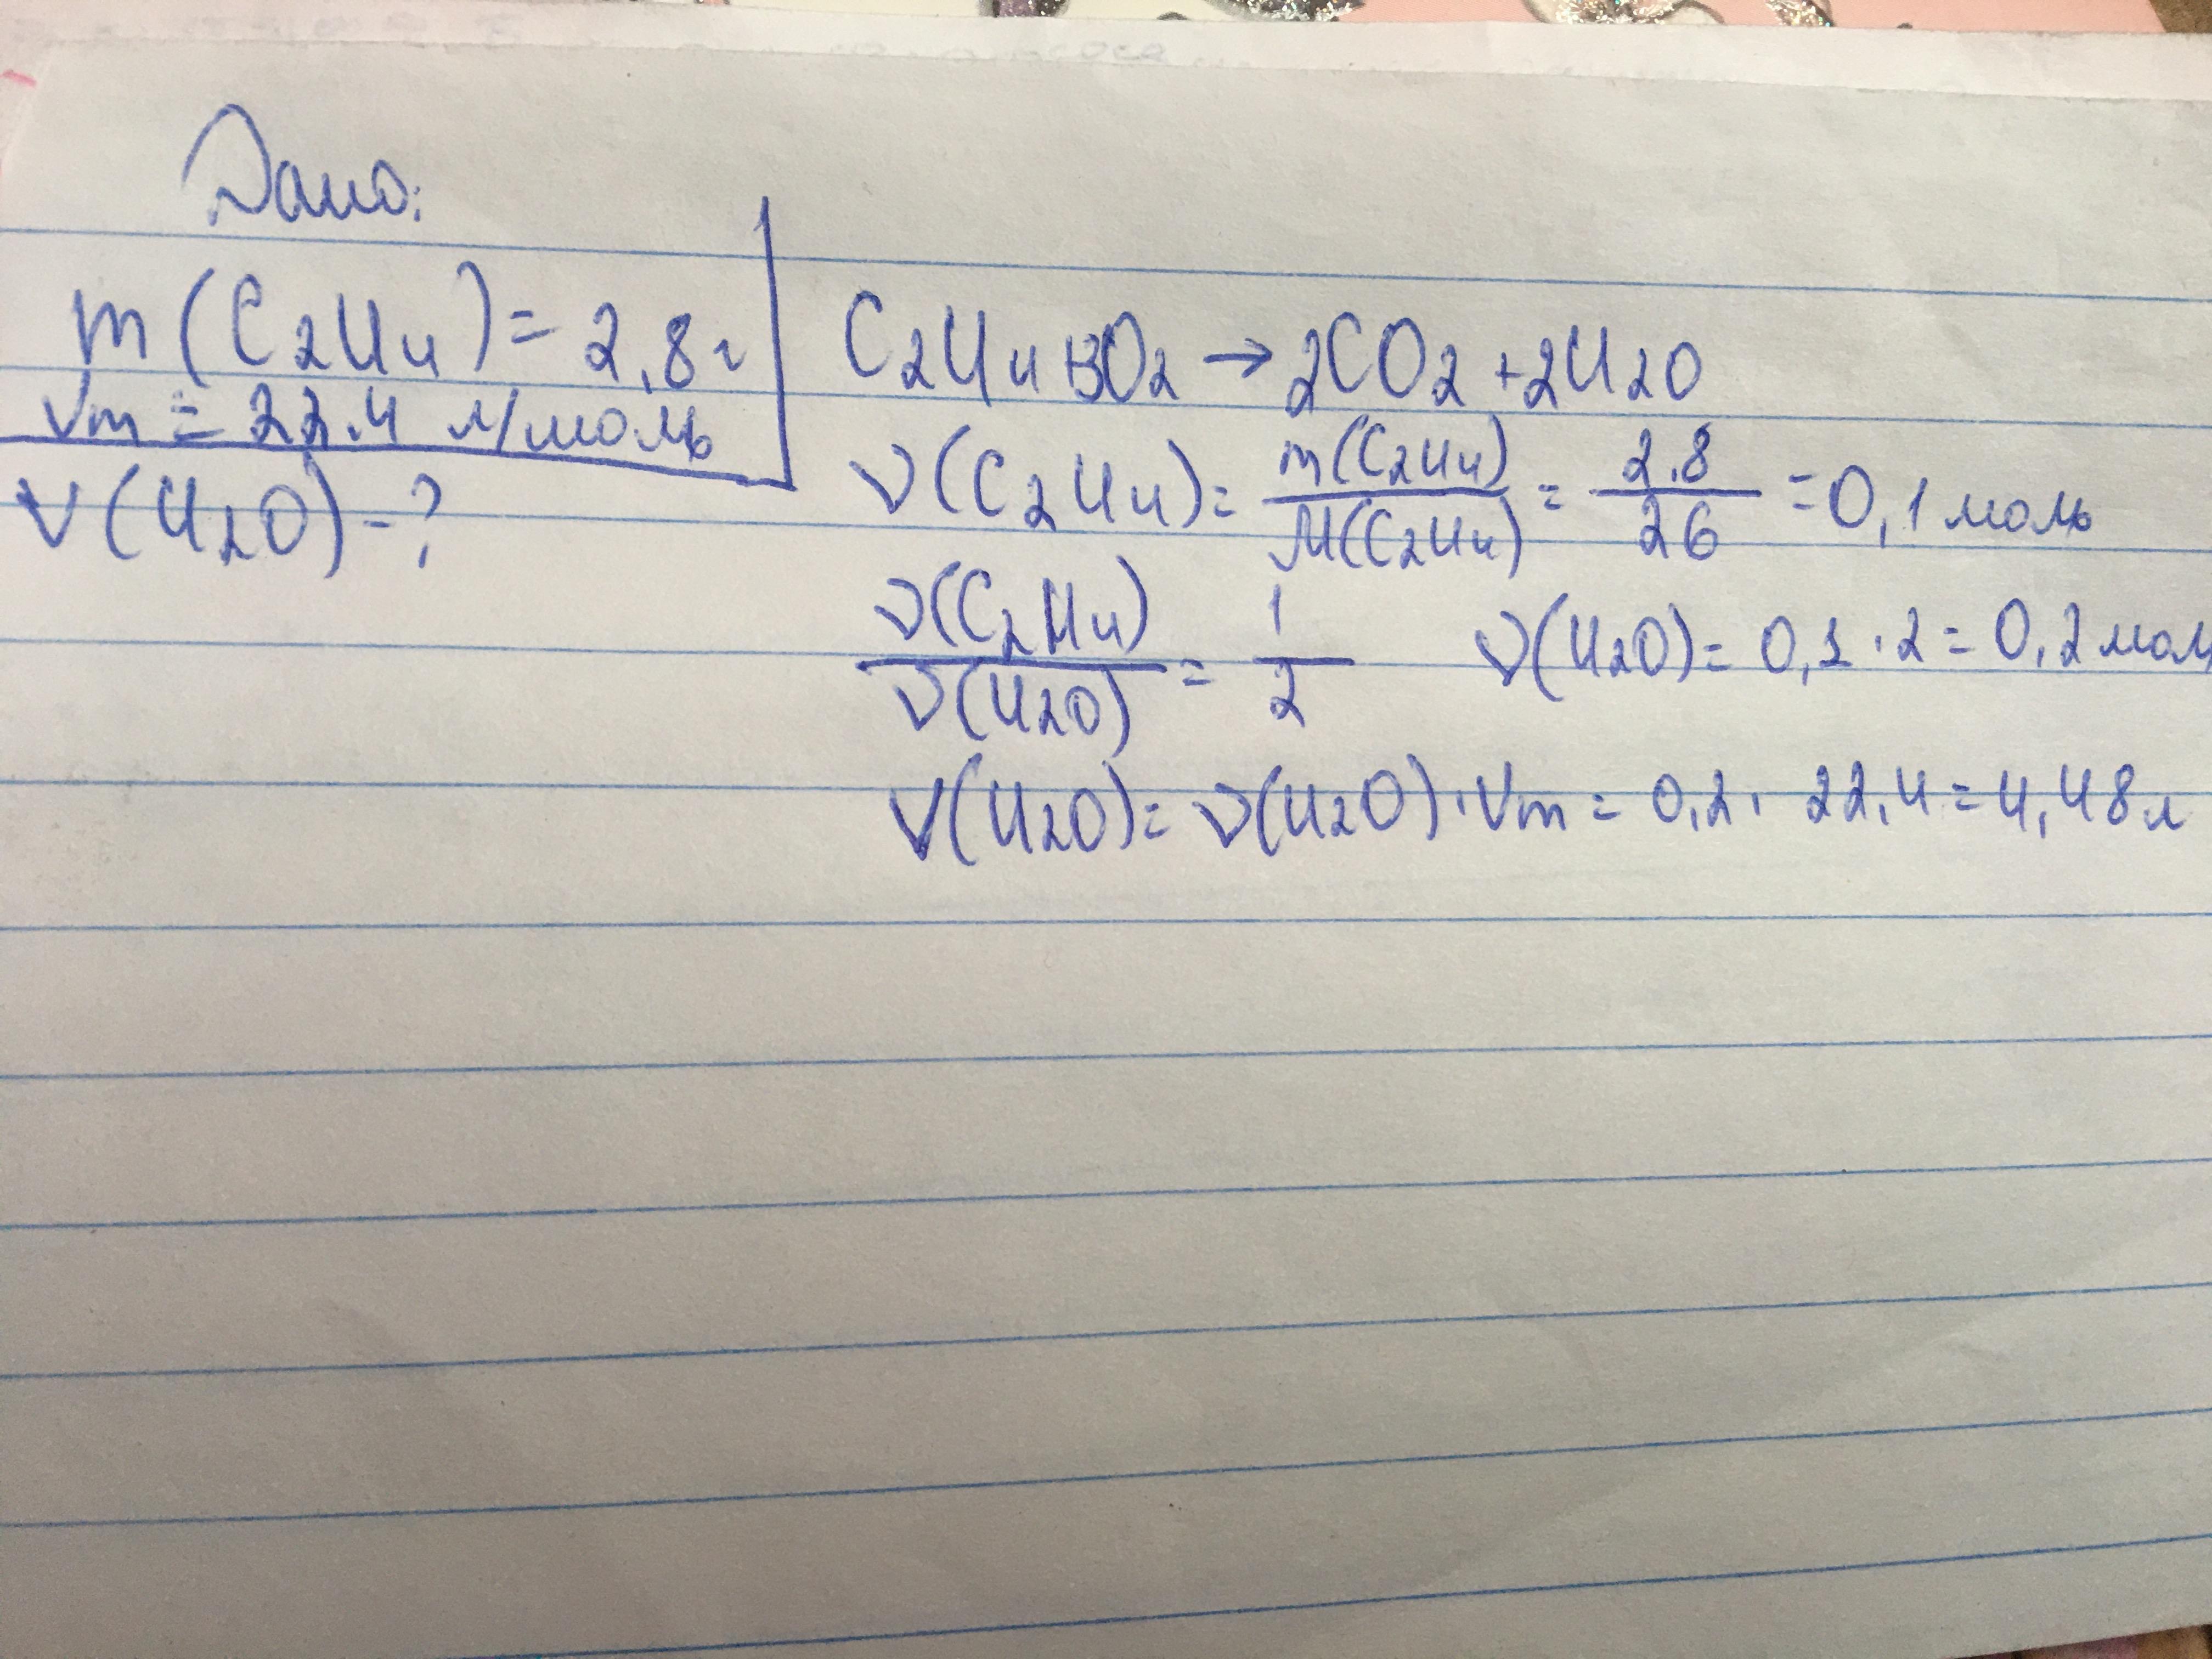 Дано:
m(C2H4) = 2,8 г
Vm = 22.4 л/моль
V(H2O) - ?
C2H4 + 3O2 → 2CO2 + 2H2O
ν(C2H4) = m(C2H4) / M(C2H4) = 2,8 / 26 = 0,1 моль
ν(C2H4) / ν(H2O) = 1 / 2 ν(H2O) = 0,1 · 2 = 0,2 мол
V(H2O) = ν(H2O) · Vm = 0,2 · 22,4 = 4,48 л